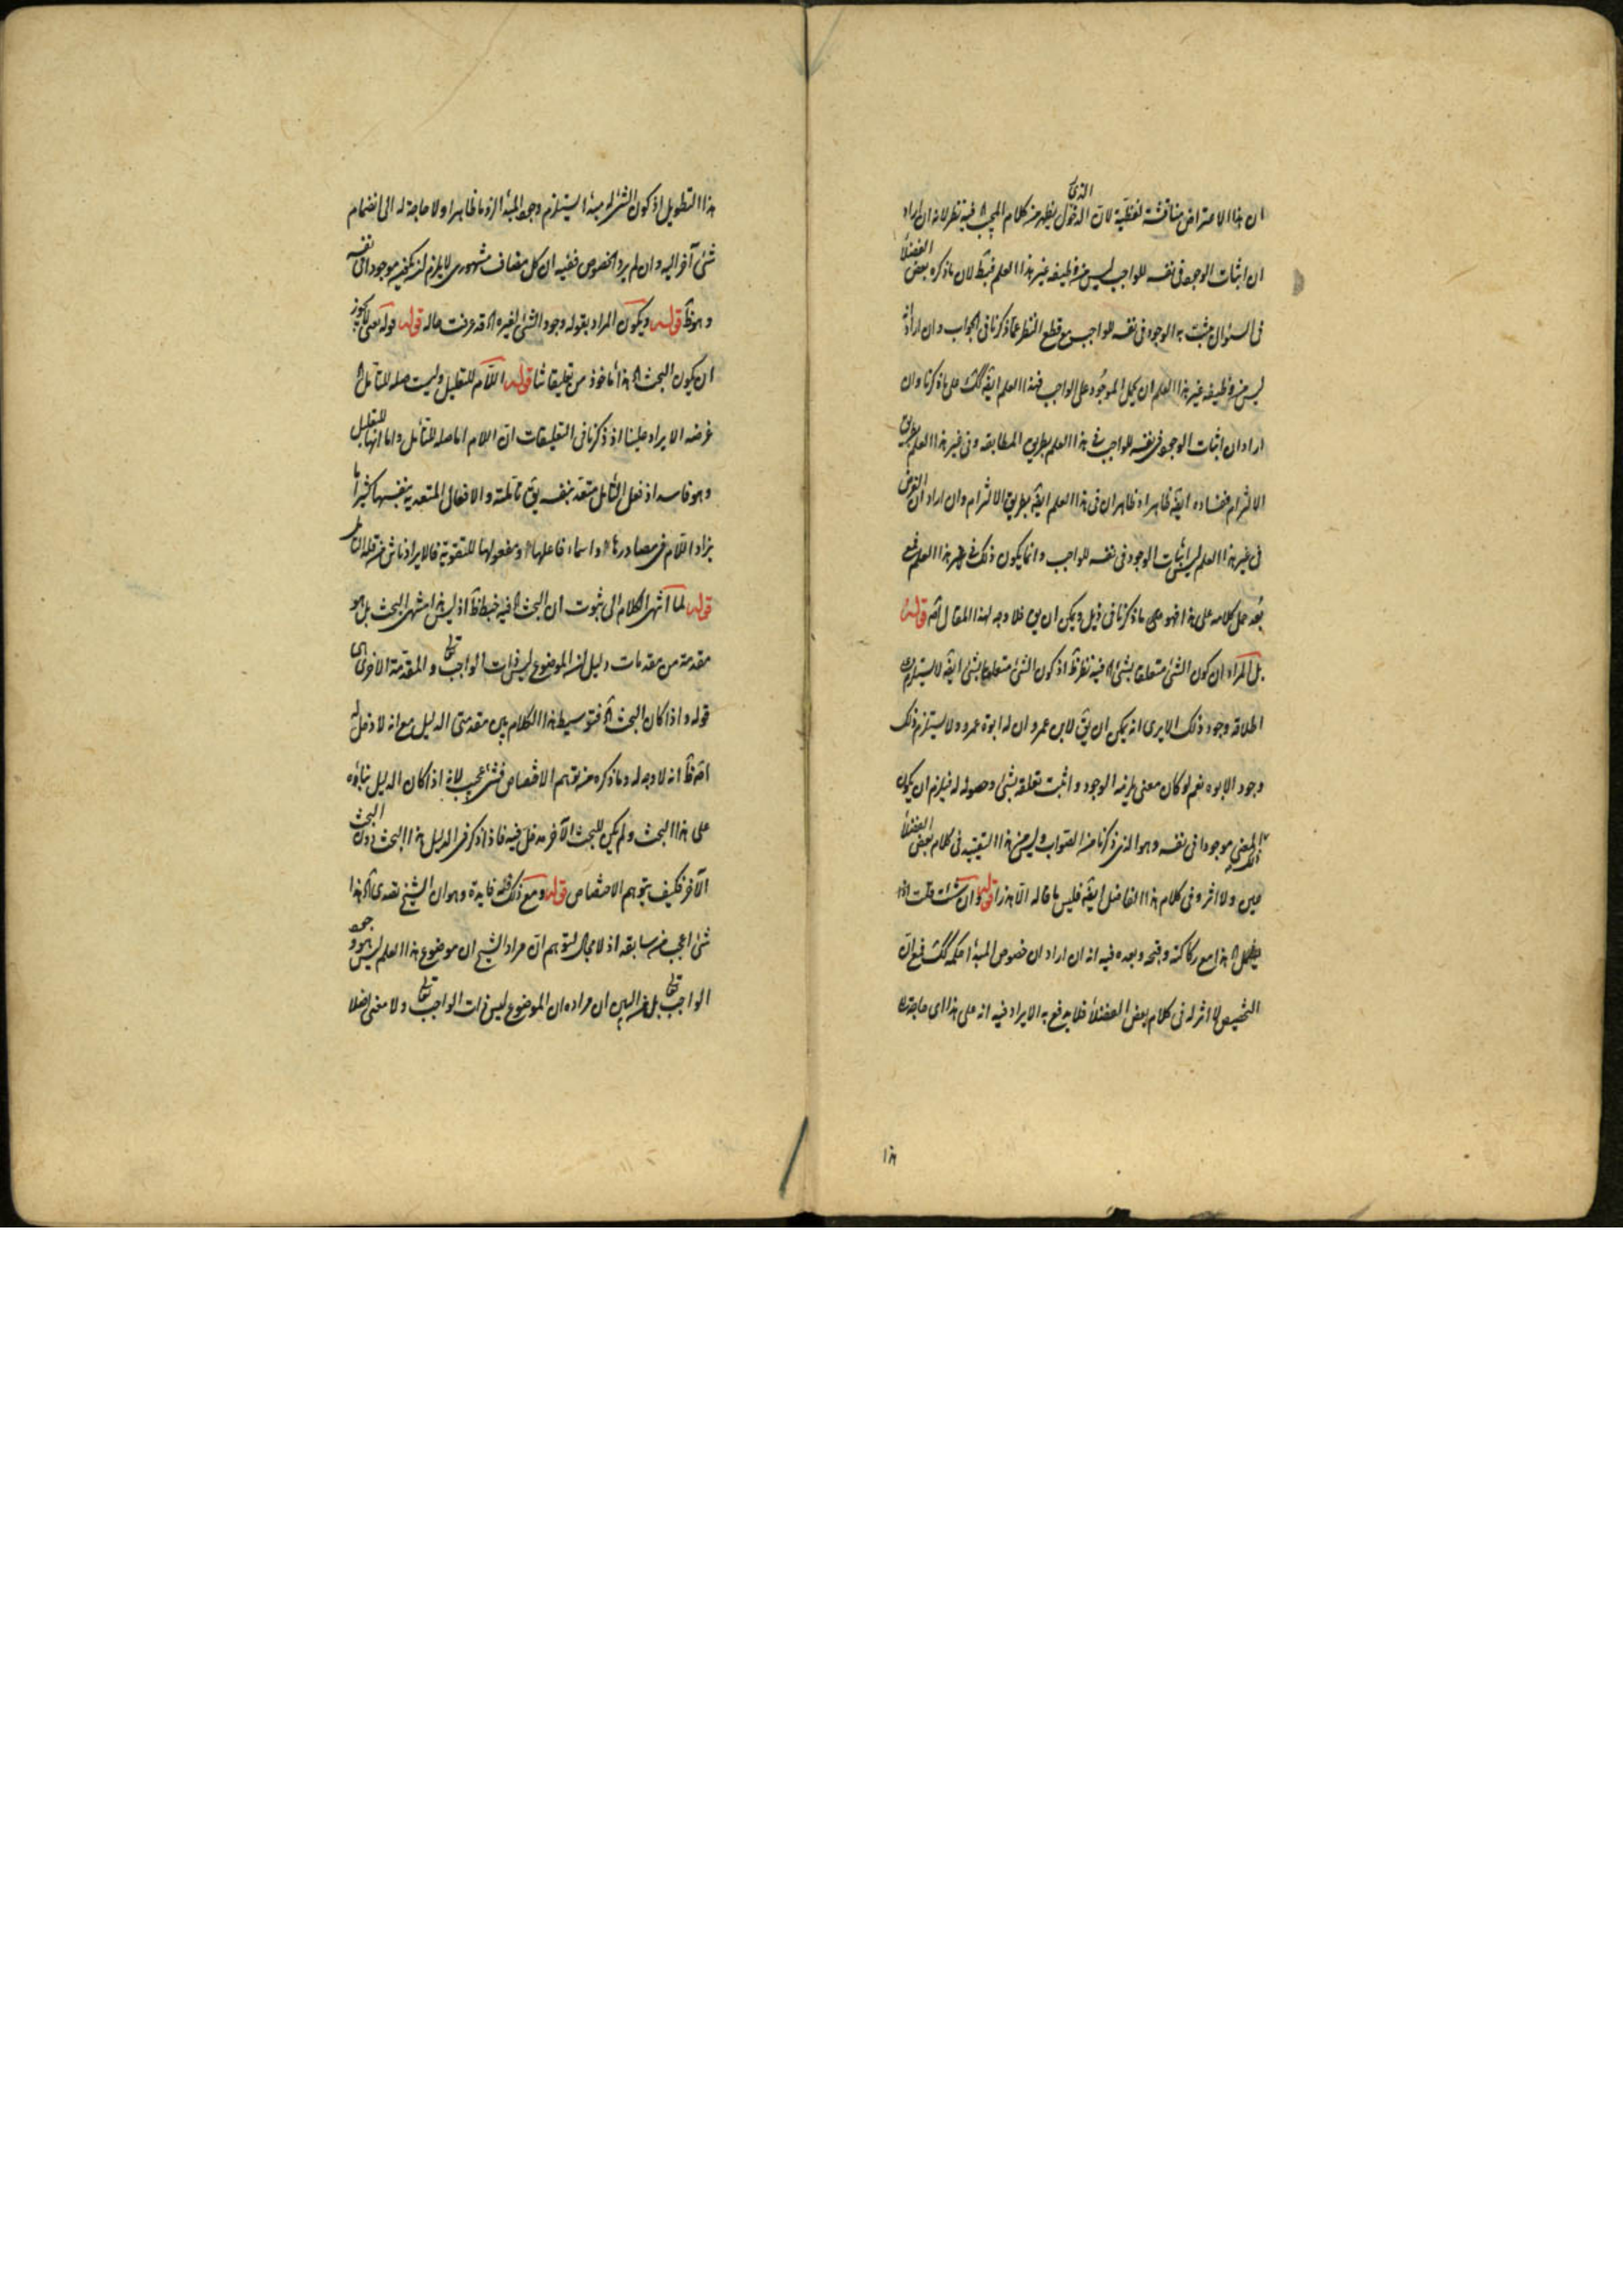 ان هذا الاعتراض مناقشة لفظية لان الدخول الذى يظهر من كلام المجيب الخ فيه نظر لانه ان اراد
ان اثبات الوجود فى نفسه للواجب ليس من وظيفة غير هذا العلم فبط لان ما ذكره بعض الفضلا
فى السؤال مثبت به الوجود فى نفسه للواجب مع قطع النظر عما ذكرنا فى الجواب وان اراد انه
ليس من وظيفة غير هذا العلم ان يحمل الموجود على الواجب فهذا العلم ايضا كك على ما ذكرنا وان
اراد ان اثبات الوجود فى نفسه للواجب فى هذا العلم بطريق المطابقه وفى غير هذا العلم بطريق
الالتزام ففساده ايضا ظاهر اذ ظاهر ان فى هذا العلم ايضا بطريق الالتزام وان اراد ان الغرض
فى غير هذا العلم ليس اثبات الوجود فى نفسه للواجب وانما يكون ذلك فى غير هذا العلم فمع
بعد حمل كلامه على هذا فهو على ما ذكرنا فى ذيل ويمكن ان يق فلا وجه لهذا المقال اصلا قوله
بل المراد ان كون الشئ متعلقا بشئ الخ فيه نظر ظ اذ كون الشئ متعلقا بشئ ايضا لا يستلزم
اطلاقه وجود ذلك الا يرى انه يمكن ان يق لابن عمرو ان له ابوة عمرو ولا يستلزم ذلك
وجود الابوه نعم لو كان معنى يلزمه الوجود واثبت تعلقه بشئ وحصوله له فيلزم ان يكون
المعنى موجودا فى نفسه وهو الذى ذكرنا من الصواب وليس من هذا التقييد فى كلام بعض الفضلا
عين ولا اثر وفى كلام هذا الفاضل ايضا فليس ما قاله الا هذرا قوله وان شئت قلت اذا
الخ هذا مع ركاكته وقبحه وبعده فيه انه ان اراد ان خصوص المبدا حكمه كك فمع ان
التخصيص لا اثر له فى كلام بعض الفضلا فلا يدفع به الايراد فيه انه على هذا اى حاجة
هذا
هذا التطويل اذ كون الشئ له مبدا يستلزم وجود المبدا لزوما ظاهرا ولا حاجة له الى انضمام
شئ آخر اليه وان لم يرد الخصوص ففيه ان كل مضاف مشهورى لا يلزم ان يكون موجودا فى نفسه
وهو ظ قوله ويكون المراد بقوله وجود الشئ لغيره الخ قد عرفت حاله قوله قوله يعنى لا يجوز
ان يكون البحث الخ هذا مأخوذ من تعليقاتنا قوله اللام للتعليل وليست صله للتأمل الخ
غرضه الايراد علينا اذ ذكرنا فى التعليقات ان اللام اما صله للتأمل واما انها للتعليل
وهو فاسد اذ فعل التأمل متعد بنفسه يق تأملته والافعال المتعديه بنفسها كثيرا ما
يزاد اللام فى مصادرها واسماء فاعلها ومفعولها للتقوية فالايراد ناش من قلة التأمل
قوله لما انتهى الكلام الى ثبوت ان البحث الخ فيه خبط ظ اذ ليس هذا منتهى البحث بل هو
مقدمة من مقدمات دليل ان الموضوع ليس ذات الواجب تعالى والمقدمة الاخرى هى
قوله واذا كان البحث الخ فتوسيط هذا الكلام بين مقدمتى الدليل مع انه لا دخل له
اصلا ظ انه لا وجه له وما ذكره من توهم الاختصاص فشئ عجيب لانه اذا كان الدليل بناؤه
على هذا البحث ولم يكن للبحث الآخر مدخل فيه فاذا ذكر فى الدليل هذا البحث دون البحث
الآخر فكيف يتوهم الاختصاص قوله ومع ذلك فله فايدة وهو ان الشيخ تصدى الخ هذا
شئ اعجب من سابقه اذ لا مجال لتوهم ان مراد الشيخ ان موضوع هذا العلم ليس هو وجود
الواجب تعالى بل من البين ان مراده ان الموضوع ليس ذات الواجب تعالى ولا معنى اصلا